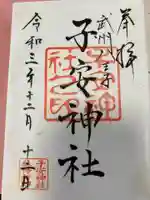 奉拝
武州八王子
子安神社
令和三年十二月十一日